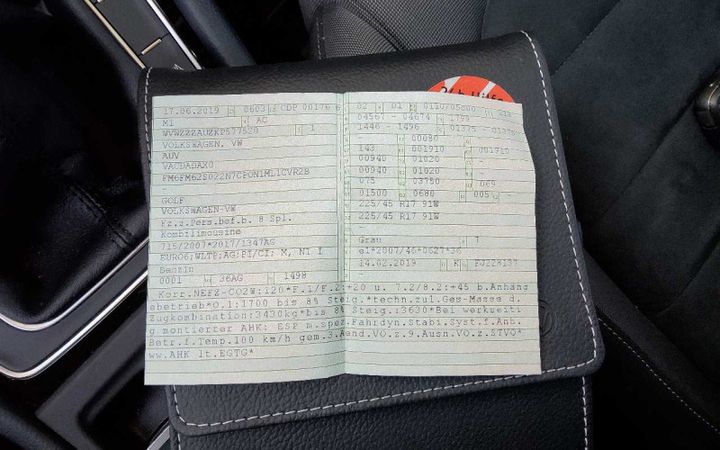 24h Hilfe
17.06.2019 0603 CDP 00176 6
M1 AC
1
VOLKSWAGEN, VW
AUV
VACDADAX0
-
GOLF
VOLKSWAGEN-VW
Fz.z.Pers.bef.b. 8 Spl.
Kombilimousine
715/2007*2017/1347AG
EURO6;WLTP;AG;PI/CI; M, N1 I
Benzin
0001 36AG 1498
02 01 0110/05000
04567 - 04674 1799
1446 - 1496 01375
- 00080 -
143 001910 001910
00940 01020 -
00940 01020 -
075 03750 069
01500 0680 005
225/45 R17 91W
225/45 R17 91W
-
Grau 7
e1*2007/46*0627*36
14.02.2019 K
Korr.NEFZ-CO2W:120*F.1/F.2:+20 u. 7.2/8.2:+45 b.Anhäng
ebetrieb*O.1:1700 bis 8% Steig.*techn.zul.Ges-Masse d.
Zugkombination:3430kg*bis 8% Steig.:3630*Bei werkseiti
g montierter AHK: ESP m.spez.Fahrdyn.Stabi.Syst.f.Anh.
Betr.f.Temp.100 km/h gem.3.Aend.VO.z.9.Ausn.VO.z.STVO*
ww.AHK lt.EGTG*